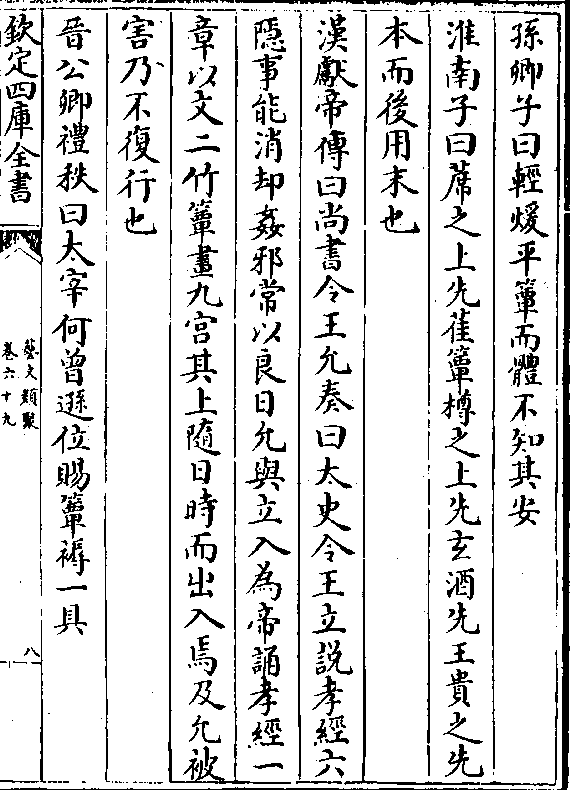 孫卿子曰輕煖平簟而體不知其安
淮南子曰蓆之上先萑簟樽之上先玄酒先王貴之先
本而後用末也
漢獻帝傳曰尚書令王允奏曰太史令王立說孝經六
隱事能消却姦邪常以良日允與立入為帝誦孝經一
章以文二竹簟畫九宮其上隨日時而出入焉及允被
害乃不復行也
晉公卿禮秩曰太宰何曾遜位賜簟褥一具
欽定四庫全書
藝文類聚
卷六十九
八